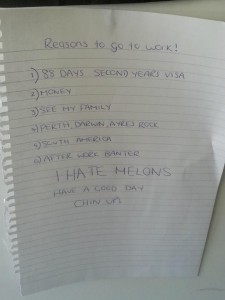 Reasons to go to work!
1) 88 DAYS SECOND YEARS VISA
2) MONEY
3) SEE MY FAMILY
4) PERTH, DARWIN, AYRES ROCK
5) SOUTH AMERICA
6) AFTER WORK BANTER
I HATE MELONS
HAVE A GOOD DAY
CHIN UP